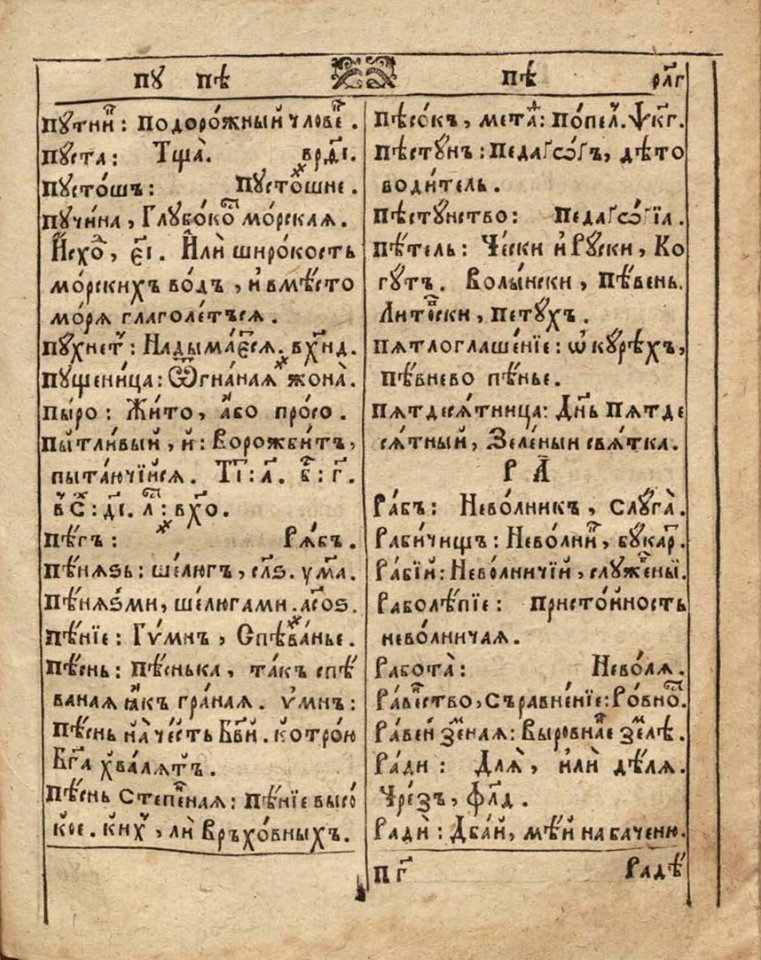 ПУ ПѢ
ПѢ
рл҃г
Пꙋтни̑: Подоро́жный члове̑.
Пꙋста: Тща̀. врд҃е.
Пꙋсто́шъ: Пꙋсто́шне.
Пꙋчи́на, Глꙋбо́ко морска́я.
И҆схо̑, є҃і. И҆лѝ широ́кость
мо́рскихъ во́дъ, и҆ вмѣ́сто
мо́ря глаголе́тъся.
Пꙋхнет̾: Надыма́є́ся.
Пꙋщеница: Ѿгна́ная жона̀.
Пы́ро: Жи́то, а҆́бо про́со.
Пытли́вый, й: Ворожби́тъ,
пыта́ючїйся. Ті҃: а҃. в҃: г҃.
Пѣ́гъ: Рѧ́бъ.
Пѣ́нязь: ше́люгъ,
Пѣ́нязми, ше́люгами.
Пѣ́нїе: Гѵ́мнъ, Спѣва́нье.
Пѣ́снь: пѣ́снька, та́къ спѣ́
ваная ꙗ҆́къ гра́ная. ѵ҆́мнъ:
Пѣ́снь на̀ че́сть Бз҃ѣй. кото́рою
Бг҃а хва́лятъ.
Пѣ́снь степе́нная: пѣ́нїе высо́
кое. Връхо́вныхъ.
Пѣ́сокъ, мета̑: По́пел.
Пѣ́стꙋнъ: Педаґѡ́ґъ, дѣто
води́тель.
Пѣ́стꙋнство: Педаґѡ́ґїа.
Пѣ́тель: Че́ски и҆ Рꙋ́ски, Ко
гꙋ́тъ. Волы́нски, Пѣ́вень.
Лито́вски, петꙋ́хъ.
Пѧтлоглаше́нїе: ѡ҆ кꙋ́рѣхъ,
пѣ́внево пѣ́нье.
Пѧтдесѧ́тница: Дн҃ь Пѧтде
сѧ́тный, Зеле́ныи свя́тка.
Р А҃
Ра́бъ: Нево́лникъ, слꙋга̀.
Раби́чищъ: Нево́лни̑, бꙋ́кар.
Ра́бїй: Нево́лничїй, слꙋже́ный.
Раболѣ́пїе: присто́йность
нево́лничая.
Рабо́та̀: Нево́ля.
Ра́вество, Съравне́нїе: Ро́вно̑.
Ра́ве́й зе́ная: Вы́ровна̑е зе́лѣ.
Ра́ди: Для̀, и҆лѝ дѣ́ля.
Чре́зъ, фл҃д.
Радѝ: Дба́й, мѣ́й на ба́ченю.
П г҃
Радѣ́